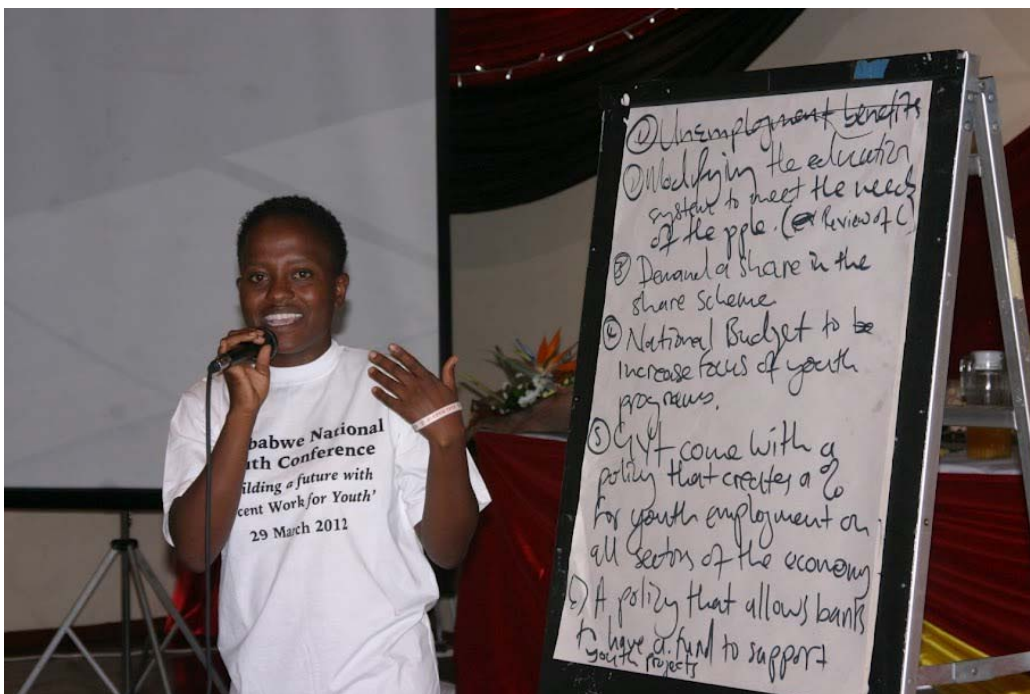 babwe National
uth Conference
ilding a future with
cent Work for Youth'
29 March 2012
① Unemployment benefits
① Modifying the education
system to meet the needs
of the pple. (Review of C)
③ Demand a share in the
share scheme
④ National Budget to be
increase focus of youth
programs.
⑤ GVT come with a
policy that creates a %
for youth employment on
all sectors of the economy.
A policy that allows banks
to have a fund to support
youth projects